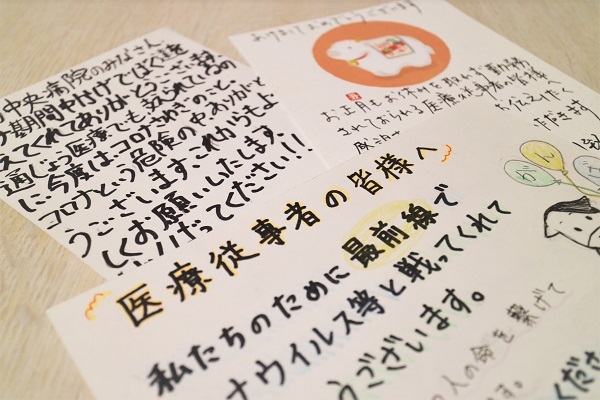 中央病院のみなさん
期間中付けでぼくを
えてくれてありがとうございます。
通じょう医療でも救われているの
に今度はコロナさわぎのこと、
コロナという危険の中ありがと
うございます。これからもよ
しくお願いいたします。
ってください!!
あけましておめでとうございます
お正月もお休みを取れず勤務
されておられる医療従事者の皆様、
医療従事者の皆様へ
私たちのために最前線で
ナウイルス等と戦ってくれて
うございます。
人の命を繋げて
す。
くださ